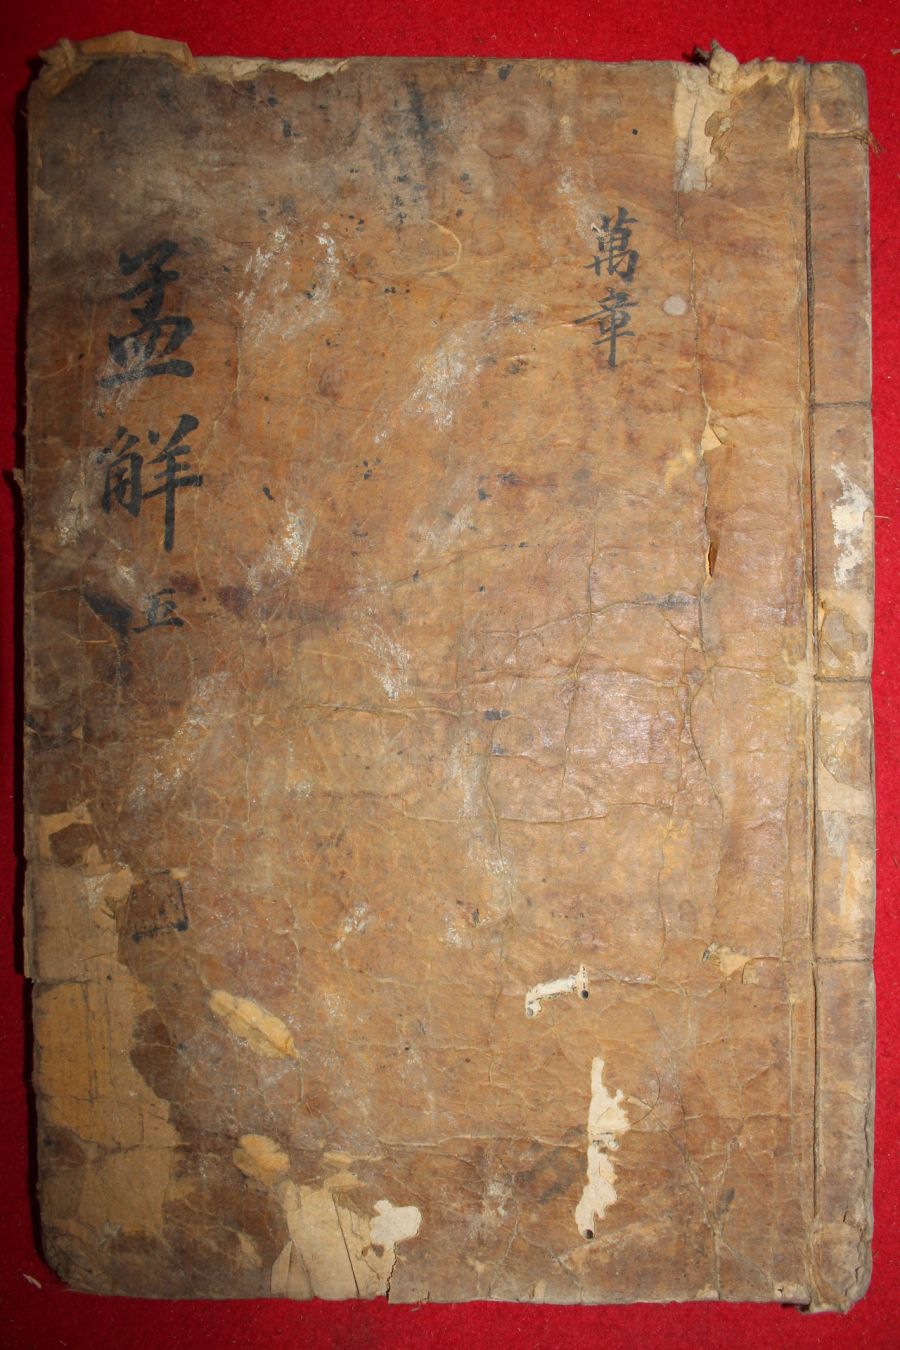 萬章
孟解 五